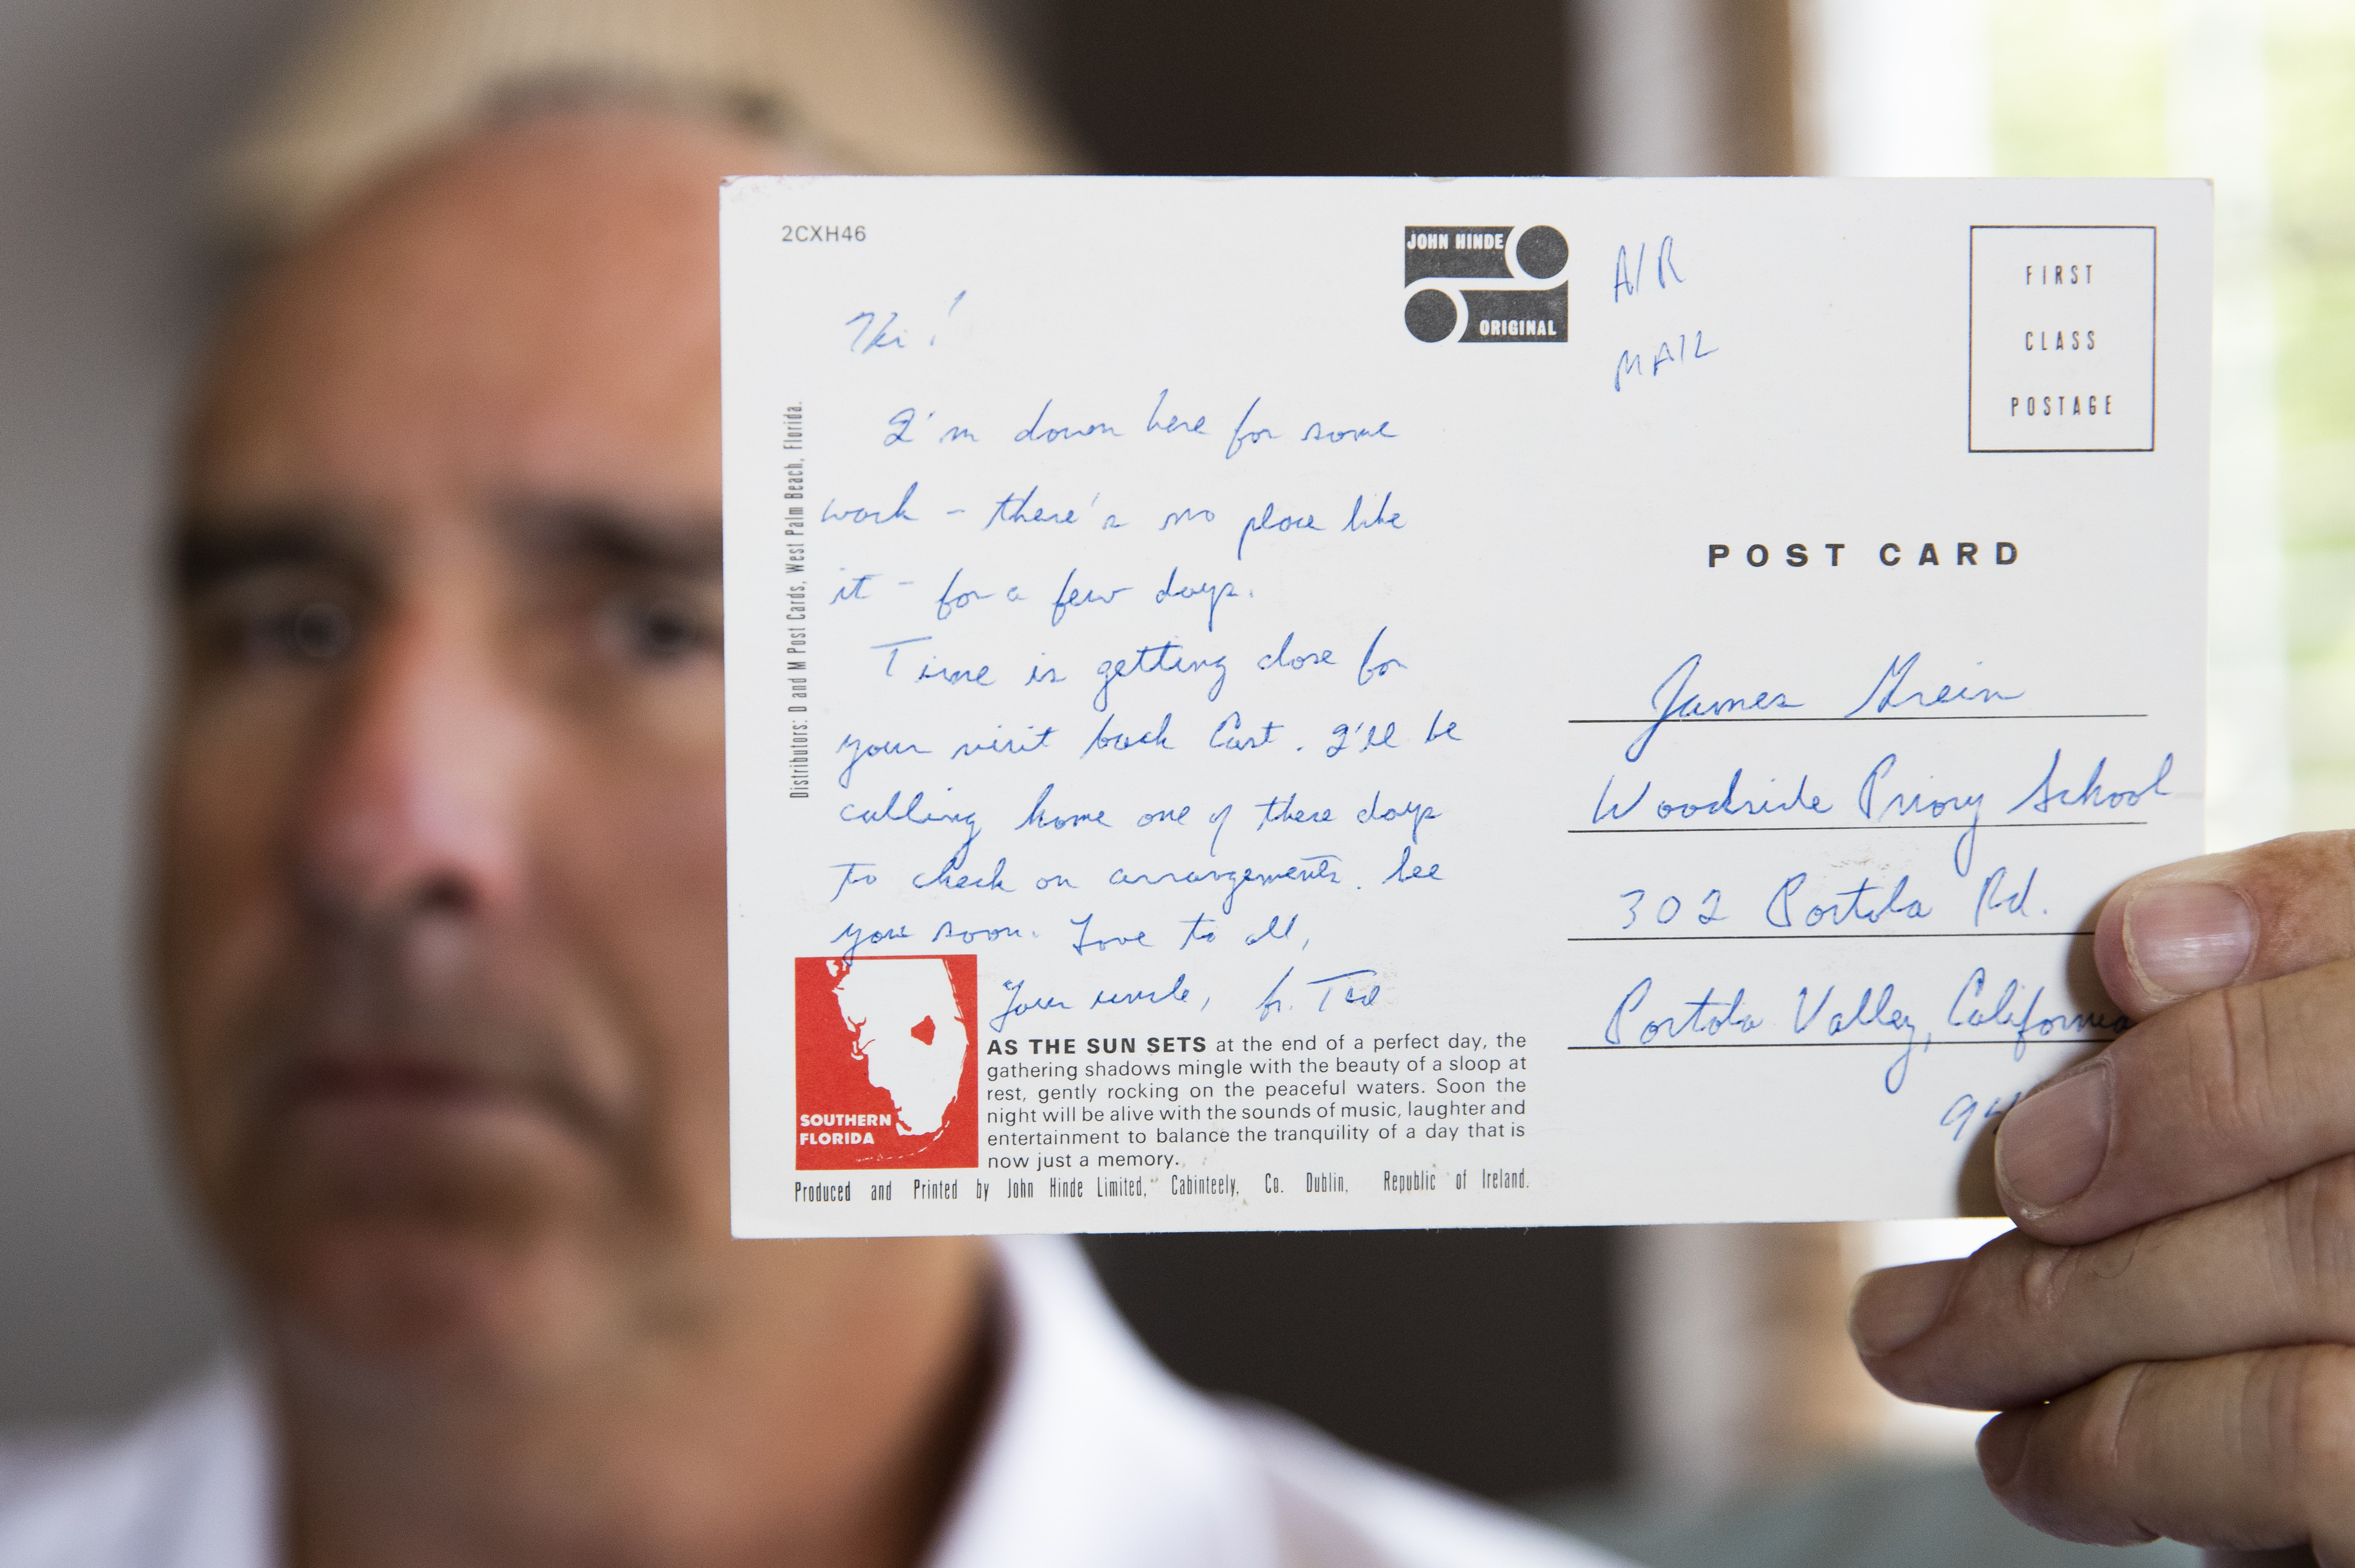 2CXH46
JOHN HINDE
ORIGINAL
Hi!
I'm down here for some
work - there's no place like
it - for a few days.
Time is getting close for
your visit back East. I'll be
calling home one of these days
to check on arrangements. See
you soon. Love to all,
Your uncle, fr. Ted
Distributors: D and M Post Cards, West Palm Beach, Florida.
SOUTHERN
FLORIDA
AS THE SUN SETS at the end of a perfect day, the
gathering shadows mingle with the beauty of a sloop at
rest, gently rocking on the peaceful waters. Soon the
night will be alive with the sounds of music, laughter and
entertainment to balance the tranquility of a day that is
now just a memory.
Produced and Printed by John Hinde Limited, Cabinteely, Co. Dublin, Republic of Ireland.
AIR
MAIL
FIRST
CLASS
POSTAGE
POST CARD
James Grein
Woodside Priory School
302 Portola Rd.
Portola Valley, California